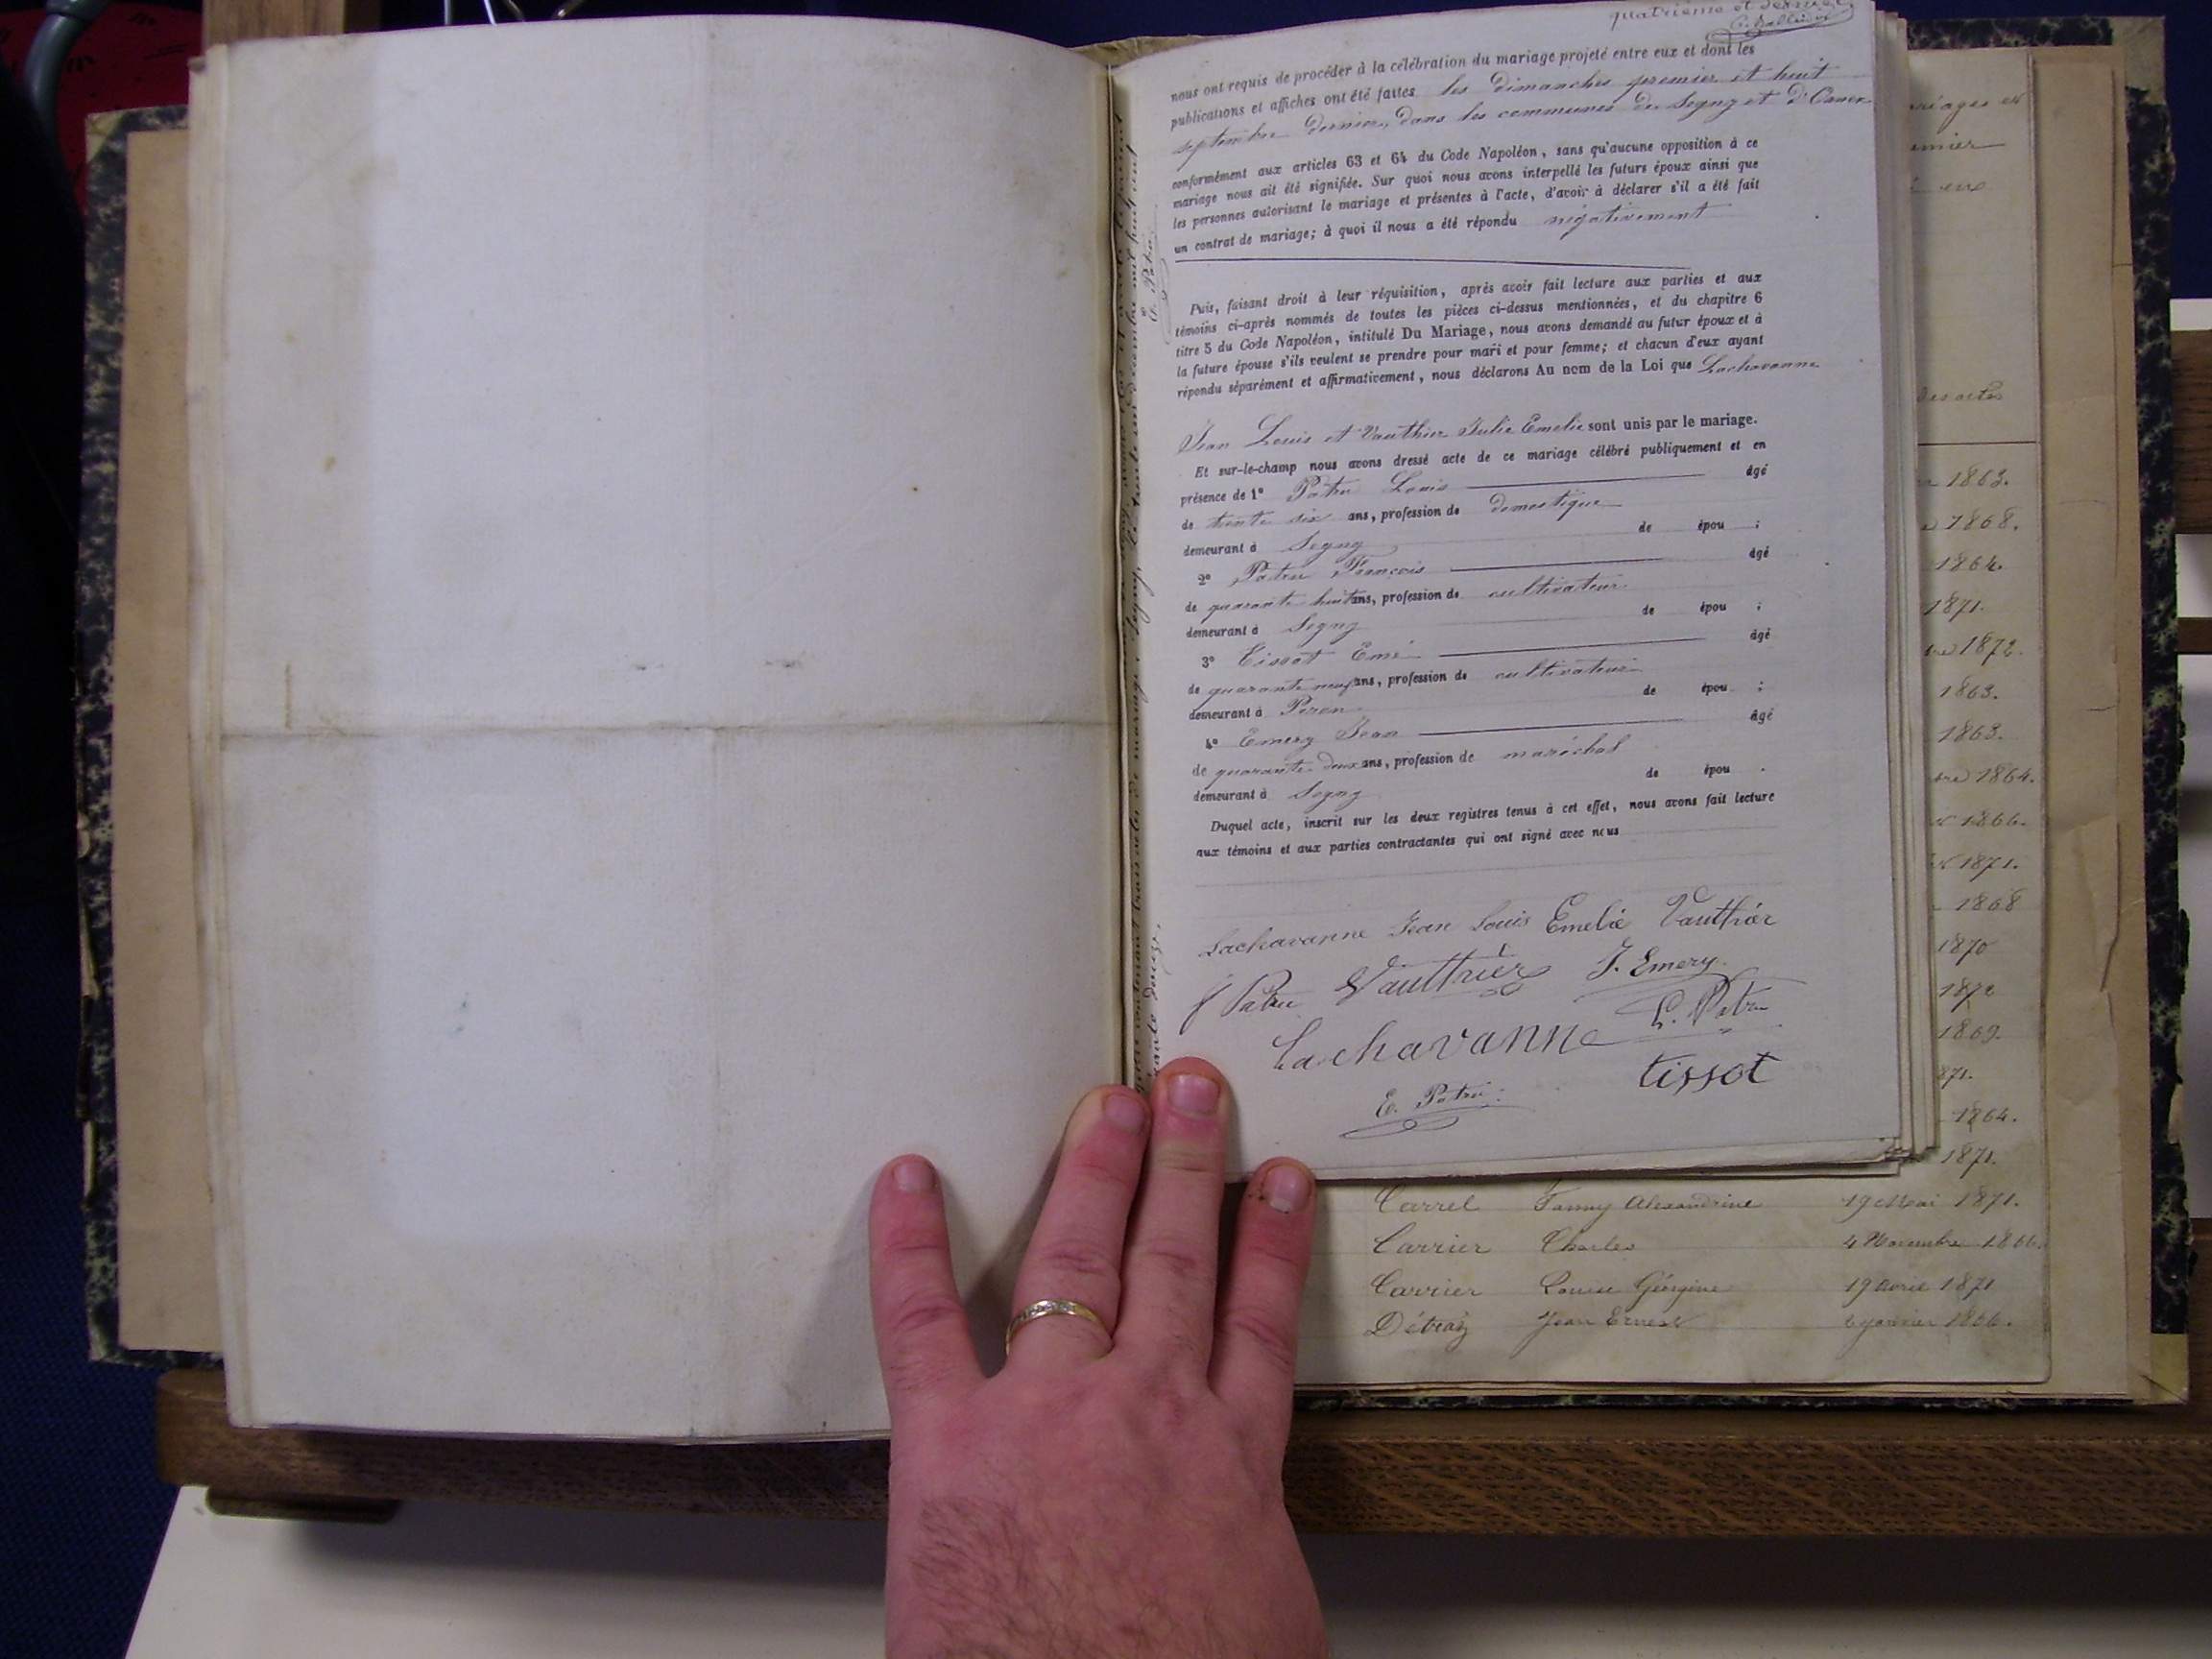 quatrième et dernier
nous ont requis de procéder à la célébration du mariage projeté entre eux et dont les
publications et affiches ont été faites les dimanches premier et huit
septembre dernier, dans les communes de Segny et d'Ornex
conformément aux articles 63 et 64 du Code Napoléon, sans qu'aucune opposition à ce
mariage nous ait été signifiée. Sur quoi nous avons interpellé les futurs époux ainsi que
les personnes autorisant le mariage et présentes à l'acte, d'avoir à déclarer s'il a été fait
un contrat de mariage; à quoi il nous a été répondu négativement
Puis, faisant droit à leur réquisition, après avoir fait lecture aux parties et aux
témoins ci-après nommés de toutes les pièces ci-dessus mentionnées, et du chapitre 6
titre 5 du Code Napoléon, intitulé Du Mariage, nous avons demandé au futur époux et à
la future épouse s'ils veulent se prendre pour mari et pour femme; et chacun d'eux ayant
répondu séparément et affirmativement, nous déclarons Au nom de la Loi que Lachavanne
Jean Louis et Vauthier Julie Emelie sont unis par le mariage.
Et sur-le-champ nous avons dressé acte de ce mariage célébré publiquement et en
présence de 1° Patru Louis âgé
de trente six ans, profession de domestique
demeurant à Segny de épou ;
2° Patru François âgé
de quarante huit ans, profession de cultivateur
demeurant à Segny de épou ;
3° Tissot Emé âgé
de quarante neuf ans, profession de cultivateur
demeurant à Peron de épou ;
4° Emery Jean âgé
de quarante deux ans, profession de maréchal
demeurant à Segny de épou .
Duquel acte, inscrit sur les deux registres tenus à cet effet, nous avons fait lecture
aux témoins et aux parties contractantes qui ont signé avec nous
Lachavanne Jean Louis Emelie Vauthier
f Patru Vauthier J. Emery
L. Patru
Lachavanne
tissot
E. Patru
des actes
1863.
1868.
1864.
1871.
1872.
1863.
1863.
1864.
1866.
1871.
1868
1870
1872
1869.
871.
1864.
1871.
Carrel Fanny Alexandrine 19 Mai 1871.
Carrier Charles 4 Novembre 1866.
Carrier Louise Géorgine 19 Avril 1871
Détraz Jean Ernest 6 janvier 1866.